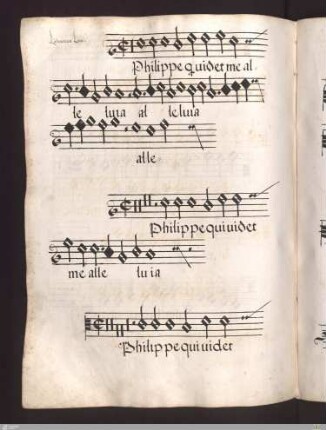 Philippe qui det me al
le luia al leluia
alle
Philippe qui uidet
me alle luia
Philippe qui uidet